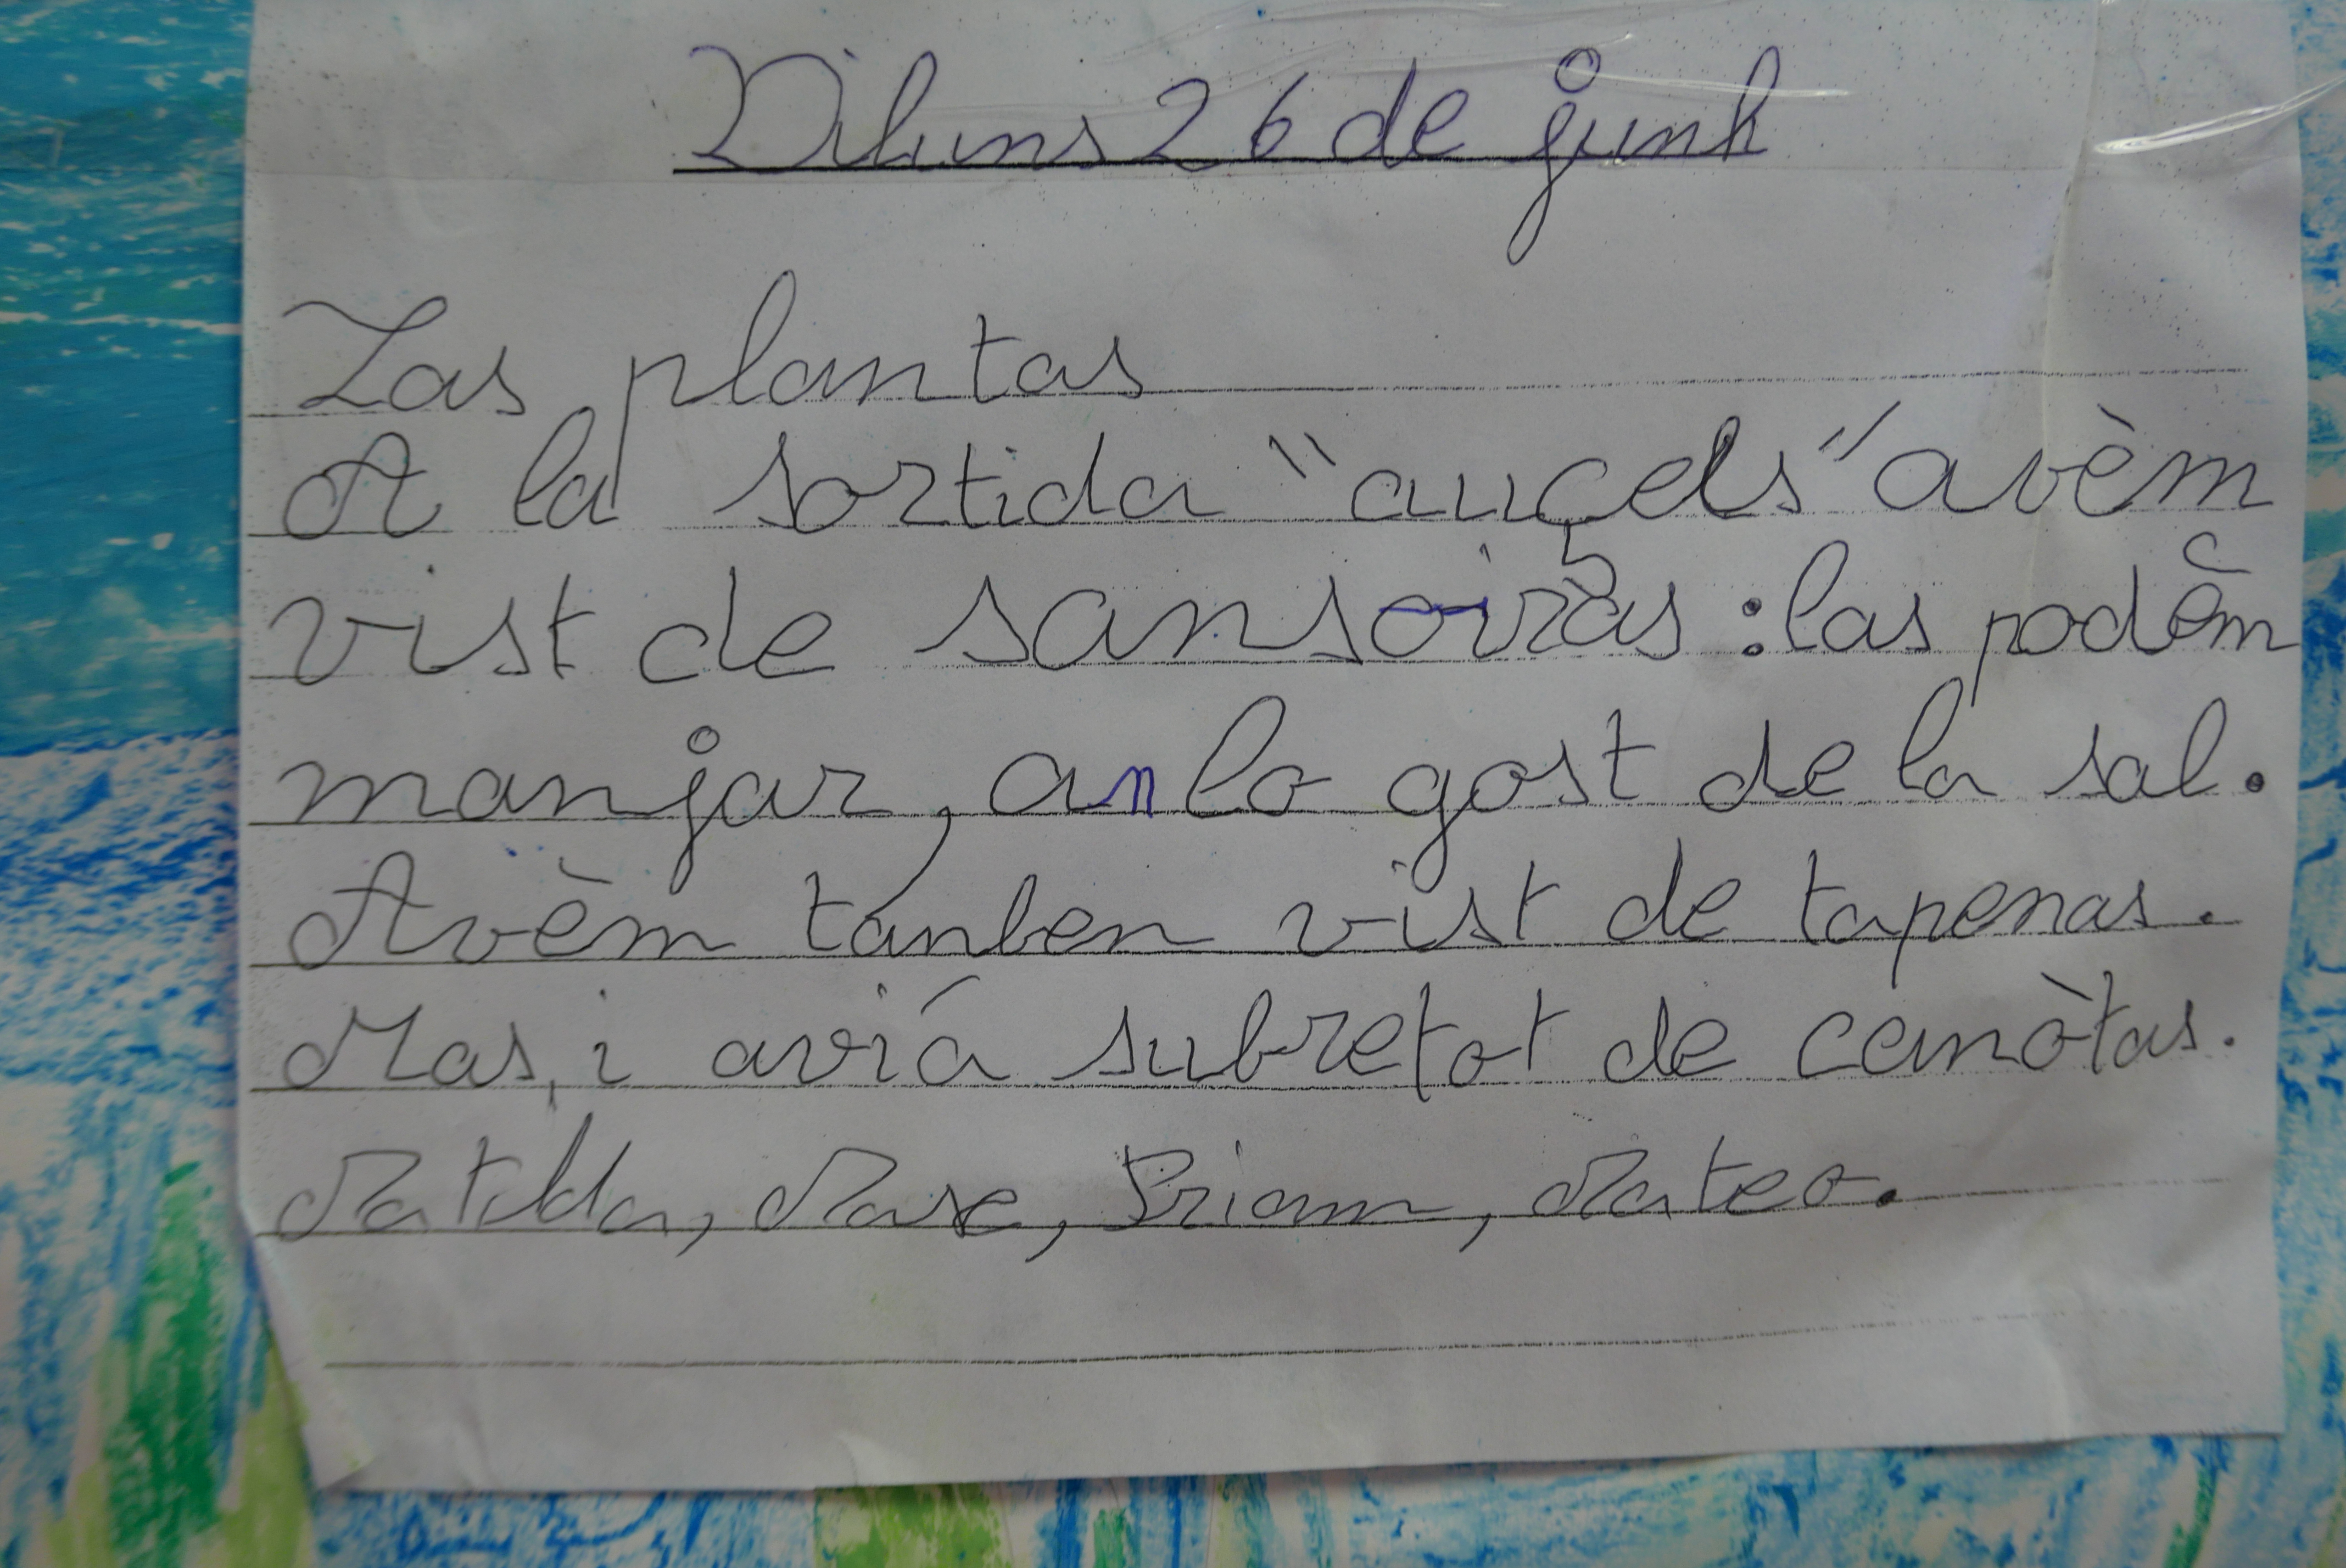 Diluns 26 de junh
Las plantas
A la sortida "auçels" avèm
vist de sansoiras : las podèm
manjar, an lo gost de la sal.
Avèm tanben vist de tapenas.
Mas, i aviá subretot de canòtas.
Matilda, Mase, Priam, Mateo.